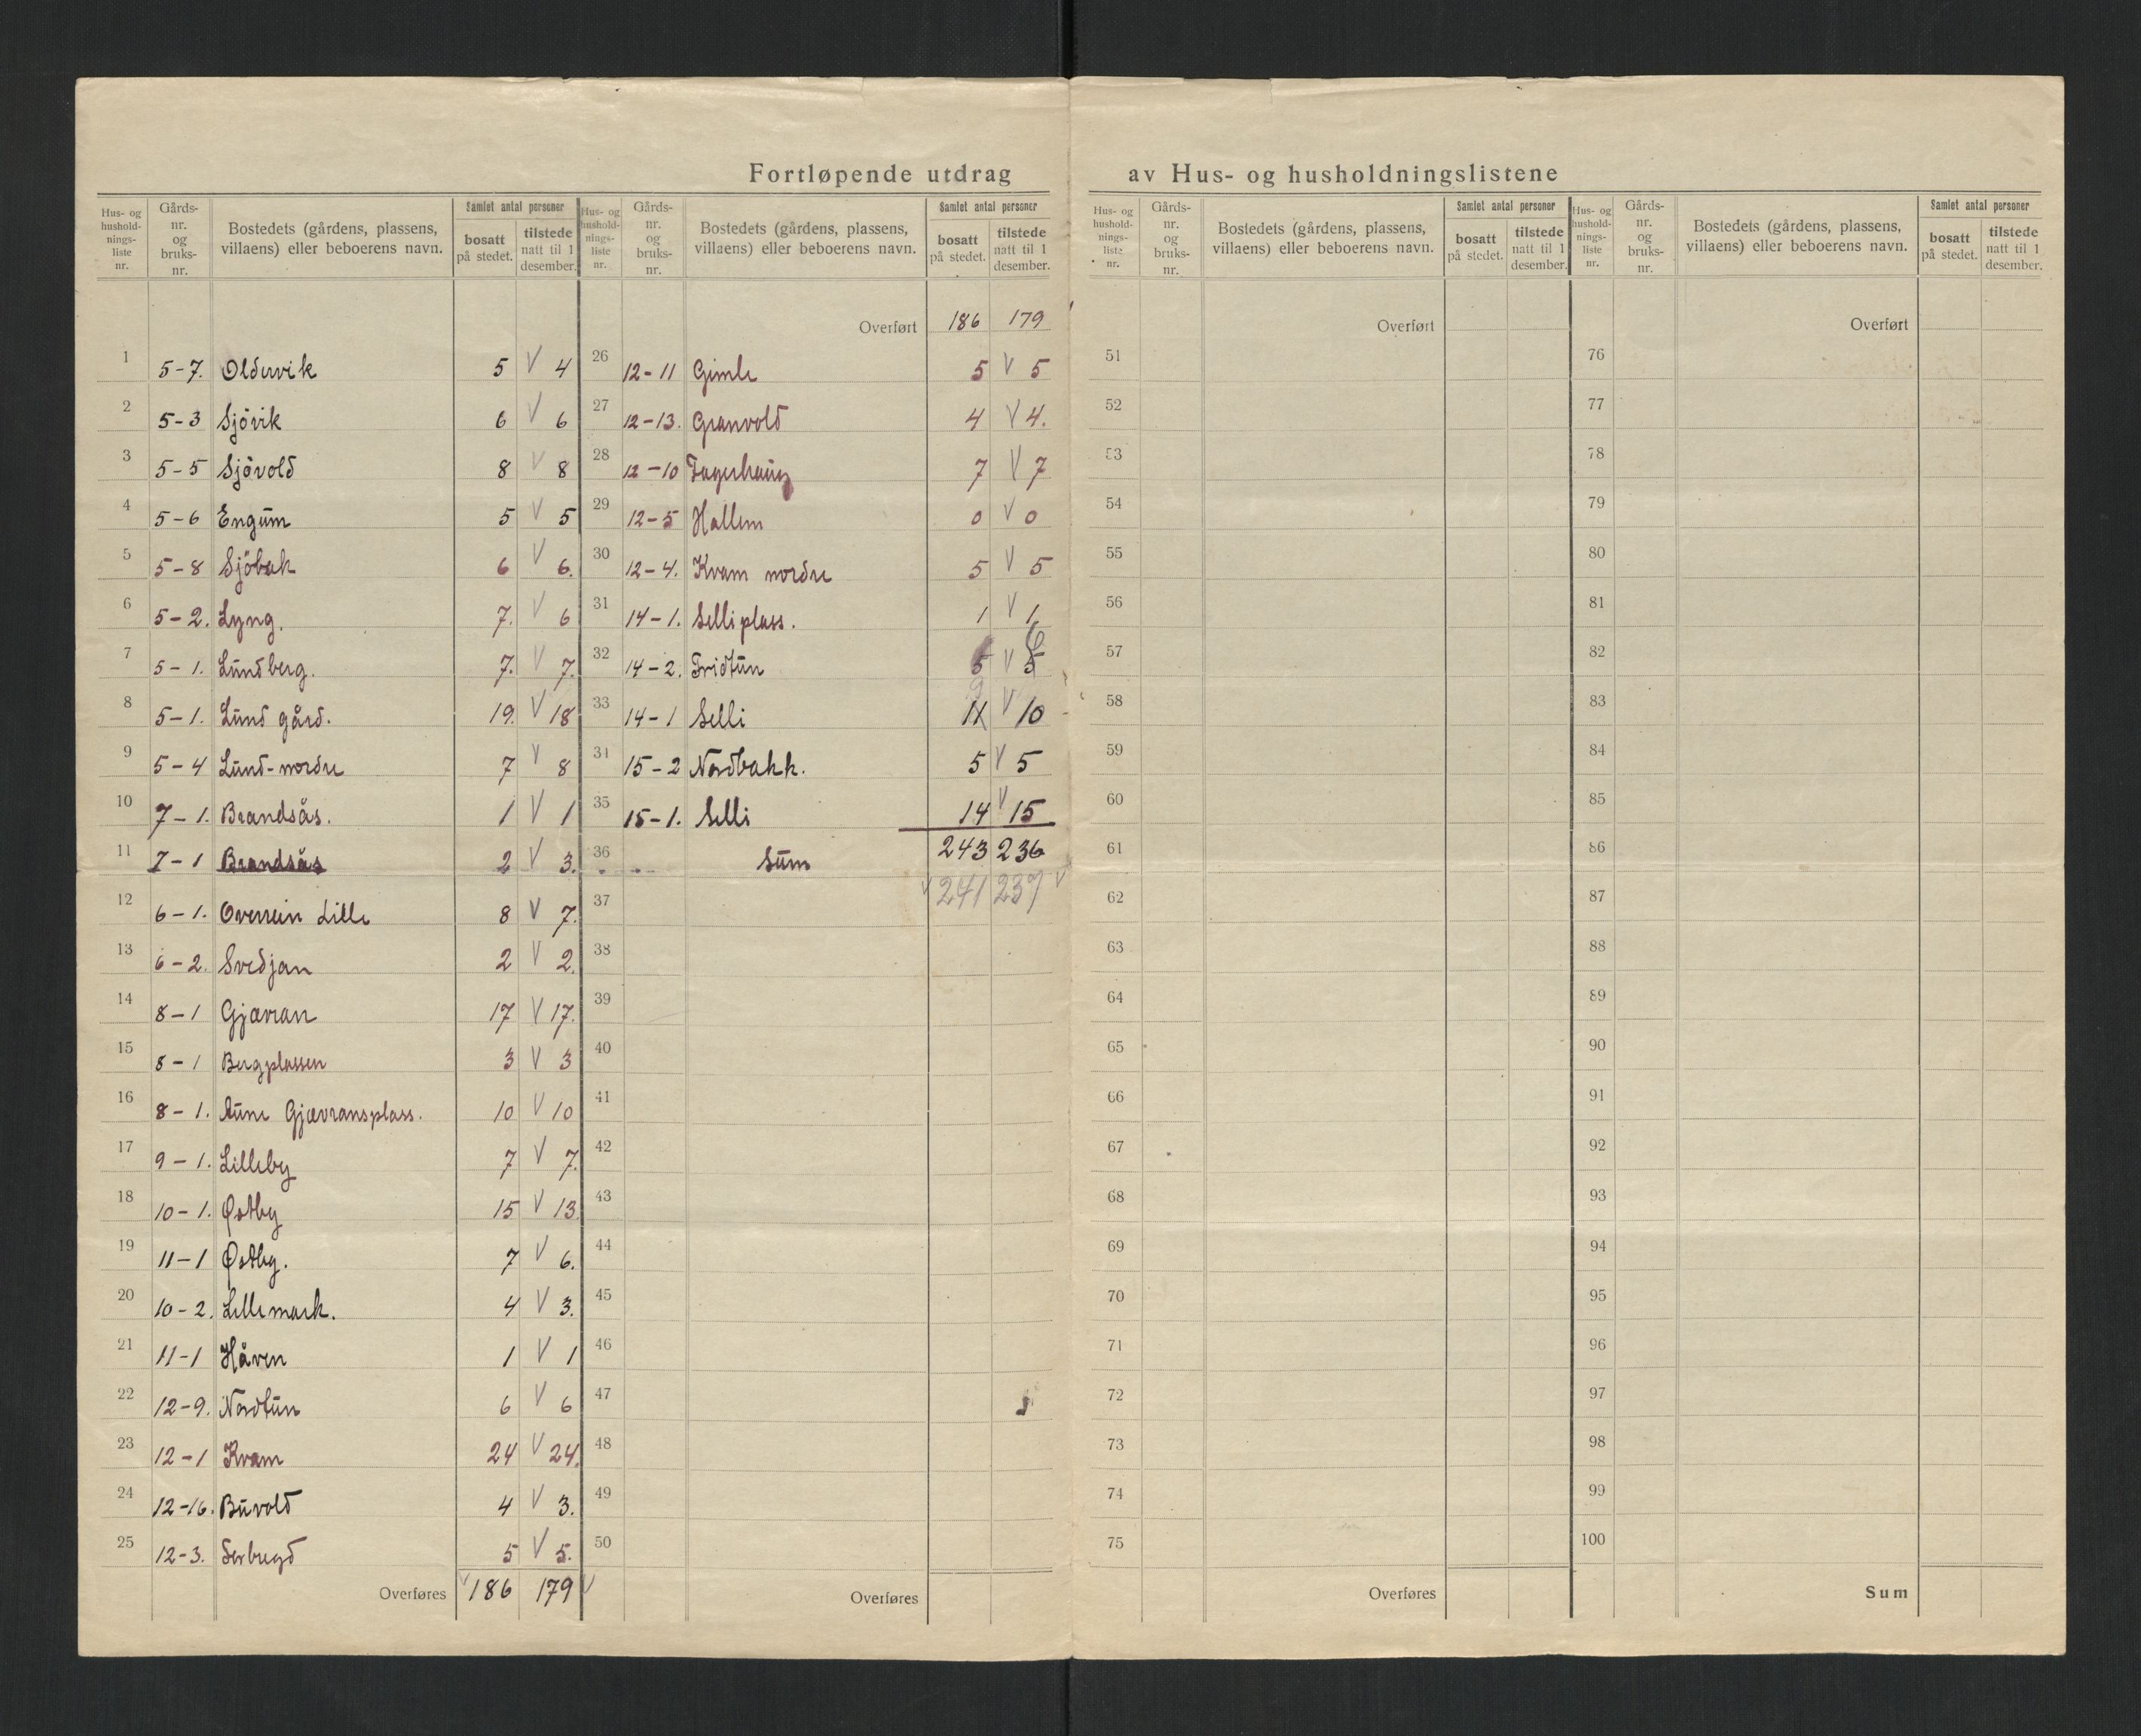 Fortløpende utdrag av Hus- og husholdningslistene
Hus- og hushold-nings-liste nr. Gårds-nr. og bruks-nr. Bostedets (gårdens, plassens, villaens) eller beboerens navn. Samlet antal personer bosatt på stedet. tilstede natt til 1 desember.
1 5-7. Oldervik 5 V 4
2 5-3 Sjövik 6 V 6
3 5-5 Sjövold 8 V 8
4 5-6 Engum 5 V 5
5 5-8 Sjöbak 6 V 6.
6 5-2. Lyng. 7. V 6
7 5-1. Lundberg. 7. V 7.
8 5-1. Lund gård. 19. V 18
9 5-4 Lund-nordre 7 V 8
10 7-1. Brandsås. 1 V 1
11 7-1 Brandsås 2 V 3.
12 6-1. Overrein Lille 8 V 7.
13 6-2. Svedjan 2 V 2.
14 8-1 Gjævran 17 V 17.
15 8-1 Bergplassen 3 V 3
16 8-1. Aune Gjævransplass. 10 V 10
17 9-1. Lilleby 7 V 7.
18 10-1. Østby 15 V 13.
19 11-1 Østby. 7 V 6.
20 10-2. Lillemark. 4 V 3.
21 11-1 Håven 1 V 1
22 12-9. Nordtun 6 V 6
23 12-1 Kvam 24 V 24.
24 12-16. Buvold 4 V 3.
25 12-3. 5 V 5.
Overføres V 186 179 V
Hus- og hushold-nings-liste nr. Gårds-nr. og bruks-nr. Bostedets (gårdens, plassens, villaens) eller beboerens navn. Samlet antal personer bosatt på stedet. tilstede natt til 1 desember.
Overført 186 179
26 12-11 Gimle 5 V 5
27 12-13. Granvold 4 V 4.
28 12-10 Fagerhaug 7 V 7
29 12-5 Hallem 0 V 0
30 12-4. Kvam nordre 5 V 5
31 14-1. Selliplass. 1 V 1
6
32 14-2. Fridtun 5 V 5
9
33 14-1 Selli 11 V 10
34 15-2 Nordbakk. 5 V 5
35 15-1. Selli 14 V 15
36 Sum 243 236
37 V 241 237 V
38
39
40
41
42
43
44
45
46
47
48
49
50
Overføres
Hus- og hushold-nings-liste nr. Gårds-nr. og bruks-nr. Bostedets (gårdens, plassens, villaens) eller beboerens navn. Samlet antal personer bosatt på stedet. tilstede natt til 1 desember.
Overført
51
52
53
54
55
56
57
58
59
60
61
62
63
64
65
66
67
68
69
70
71
72
73
74
75
Overføres
Hus- og hushold-nings-liste nr. Gårds-nr. og bruks-nr. Bostedets (gårdens, plassens, villaens) eller beboerens navn. Samlet antal personer bosatt på stedet. tilstede natt til 1 desember.
Overført
76
77
78
79
80
81
82
83
84
85
86
87
88
89
90
91
92
93
94
95
96
97
98
99
100
Sum